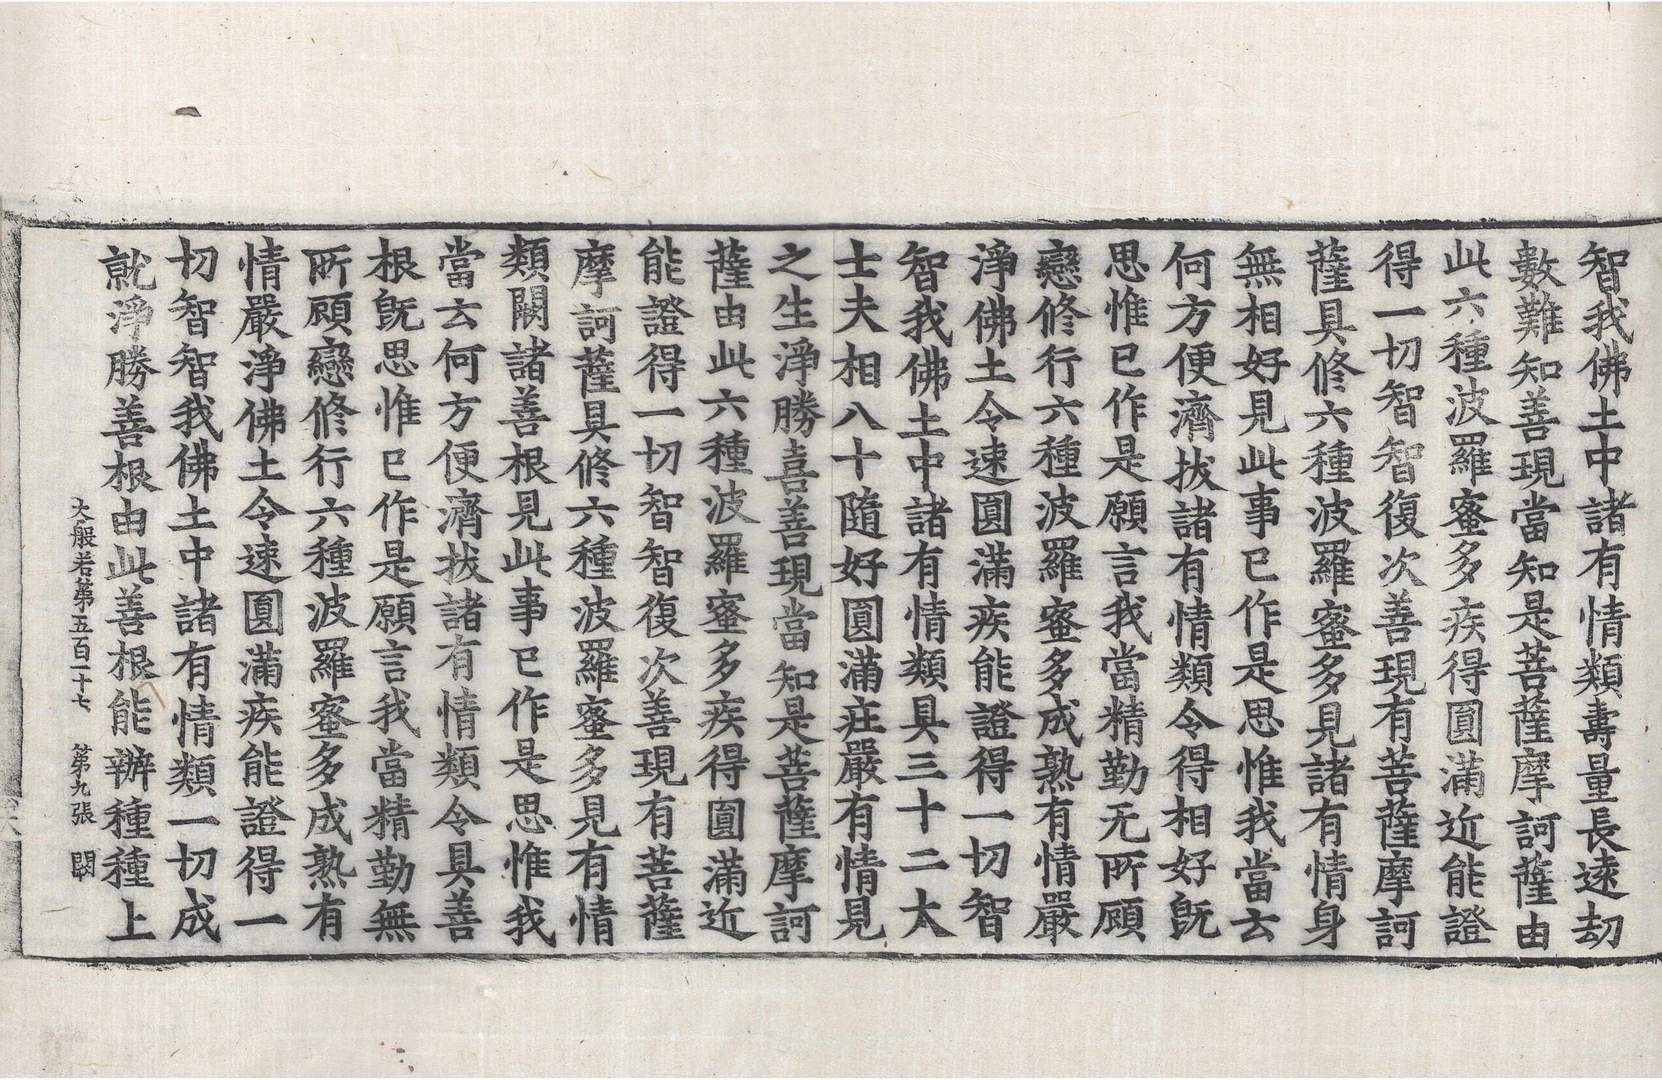 智我佛土中諸有情類壽量長遠劫
數難知善現當知是菩薩摩訶薩由
此六種波羅蜜多疾得圓滿近能證
得一切智智復次善現有菩薩摩訶
薩具修六種波羅蜜多見諸有情身
無相好見此事已作是思惟我當云
何方便濟拔諸有情類令得相好旣
思惟已作是願言我當精勤无所顧
戀修行六種波羅蜜多成熟有情嚴
淨佛土令速圓滿疾能證得一切智
智我佛土中諸有情類具三十二大
士夫相八十隨好圓滿莊嚴有情見
之生淨勝喜善現當知是菩薩摩訶
薩由此六種波羅蜜多疾得圓滿近
能證得一切智智復次善現有菩薩
摩訶薩具修六種波羅蜜多見有情
類闕諸善根見此事已作是思惟我
當云何方便濟拔諸有情類令具善
根旣思惟已作是願言我當精勤無
所顧戀修行六種波羅蜜多成熟有
情嚴淨佛土令速圓滿疾能證得一
切智智我佛土中諸有情類一切成
就淨勝善根由此善根能辦種種上
大般若第五百一十七 第九張 闕